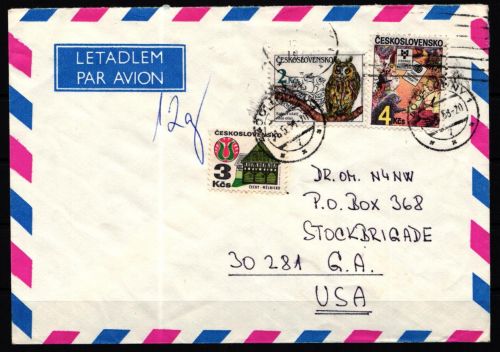 LETADLEM
PAR AVION
12g
ČESKOSLOVENSKO
2
ČESKOSLOVENSKO
4 Kčs
ČESKOSLOVENSKO
3 Kčs
ČECHY - MĚLNICKO
DR. OH. N4NW
P.O. BOX 368
STOCKBRIGADE
30281 G.A.
USA